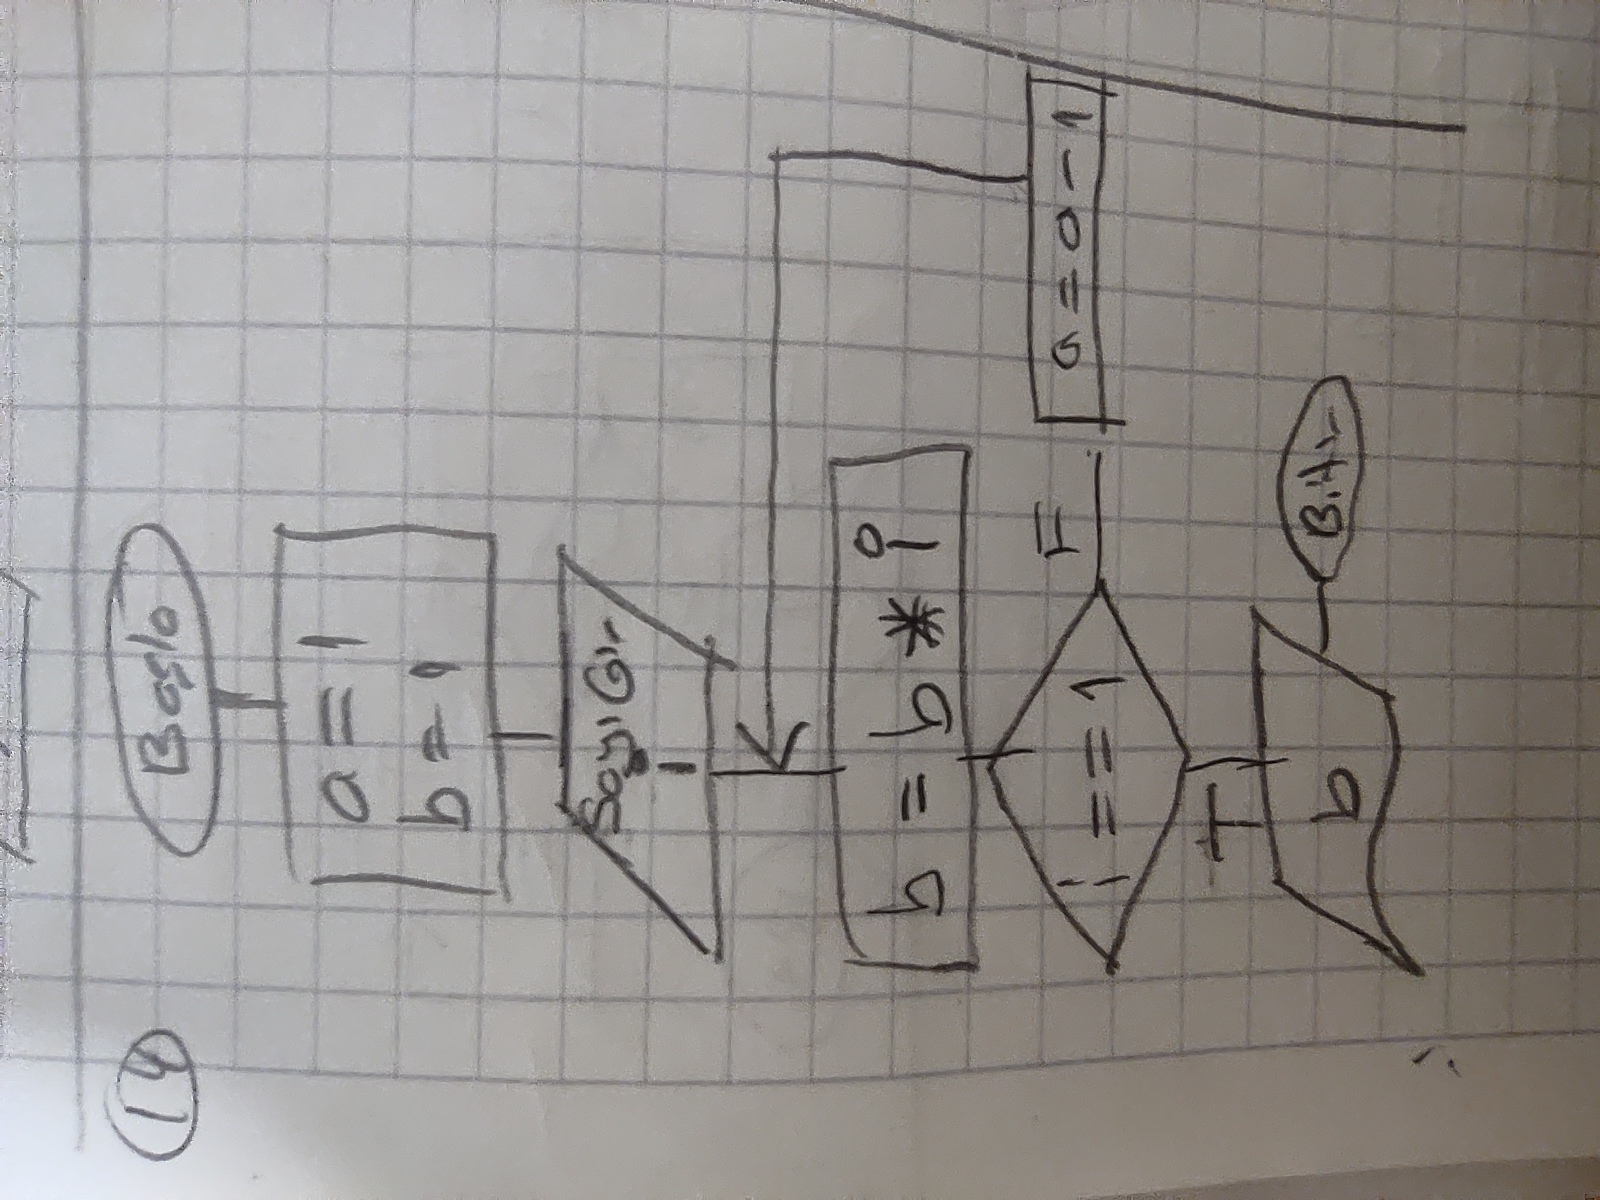 14
Başla
a = 1
b = 1
Sayı Gir
i
b = b * i
i == 1
F
a = a - 1
T
b
Bitir